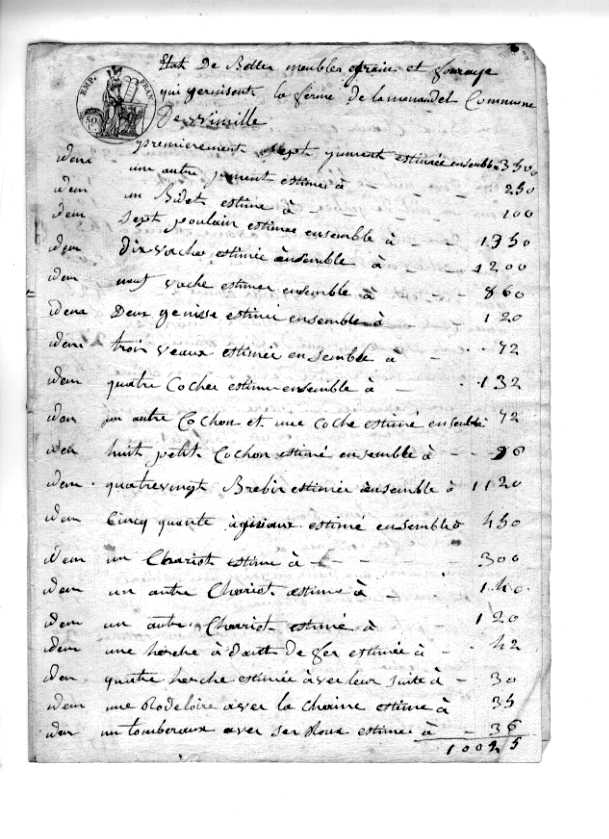 EMP. FRAN
50
Etat de Bettes meubles grain et fourage
qui gernisent la ferme de la Commune
De
premierement sept jument estimée ensemble 3500
idem un autre jument estimé à 250
idem un Bidet estimé à 100
idem sept poulain estimée ensemble à 1350
idem Dix vache estimée ensemble à 1200
idem neuf vache estimer ensemble à 860
idem Deux genisse estimé ensemble à 120
idem trois veaux estimée ensemble à 72
idem quatre Coche estimé ensemble à 132
idem un autre Cochon et une Coche estimé ensemble 72
idem huit petit Cochon estimé ensemble à 96
idem quatrevingt Brebis estimée ensemble à 1120
idem Cincquante estimé ensemble à 450
idem un Chariot estimé à 300
idem un autre Chariot estimé à 140
idem un autre Chariot estimé à 120
idem une herche à dant de fer estimée à 42
idem quatre herche estimée aver leur suite à 30
idem une aver la chaine estimé à 35
idem un tomberaux aver ser Roux estimé à 36
10025